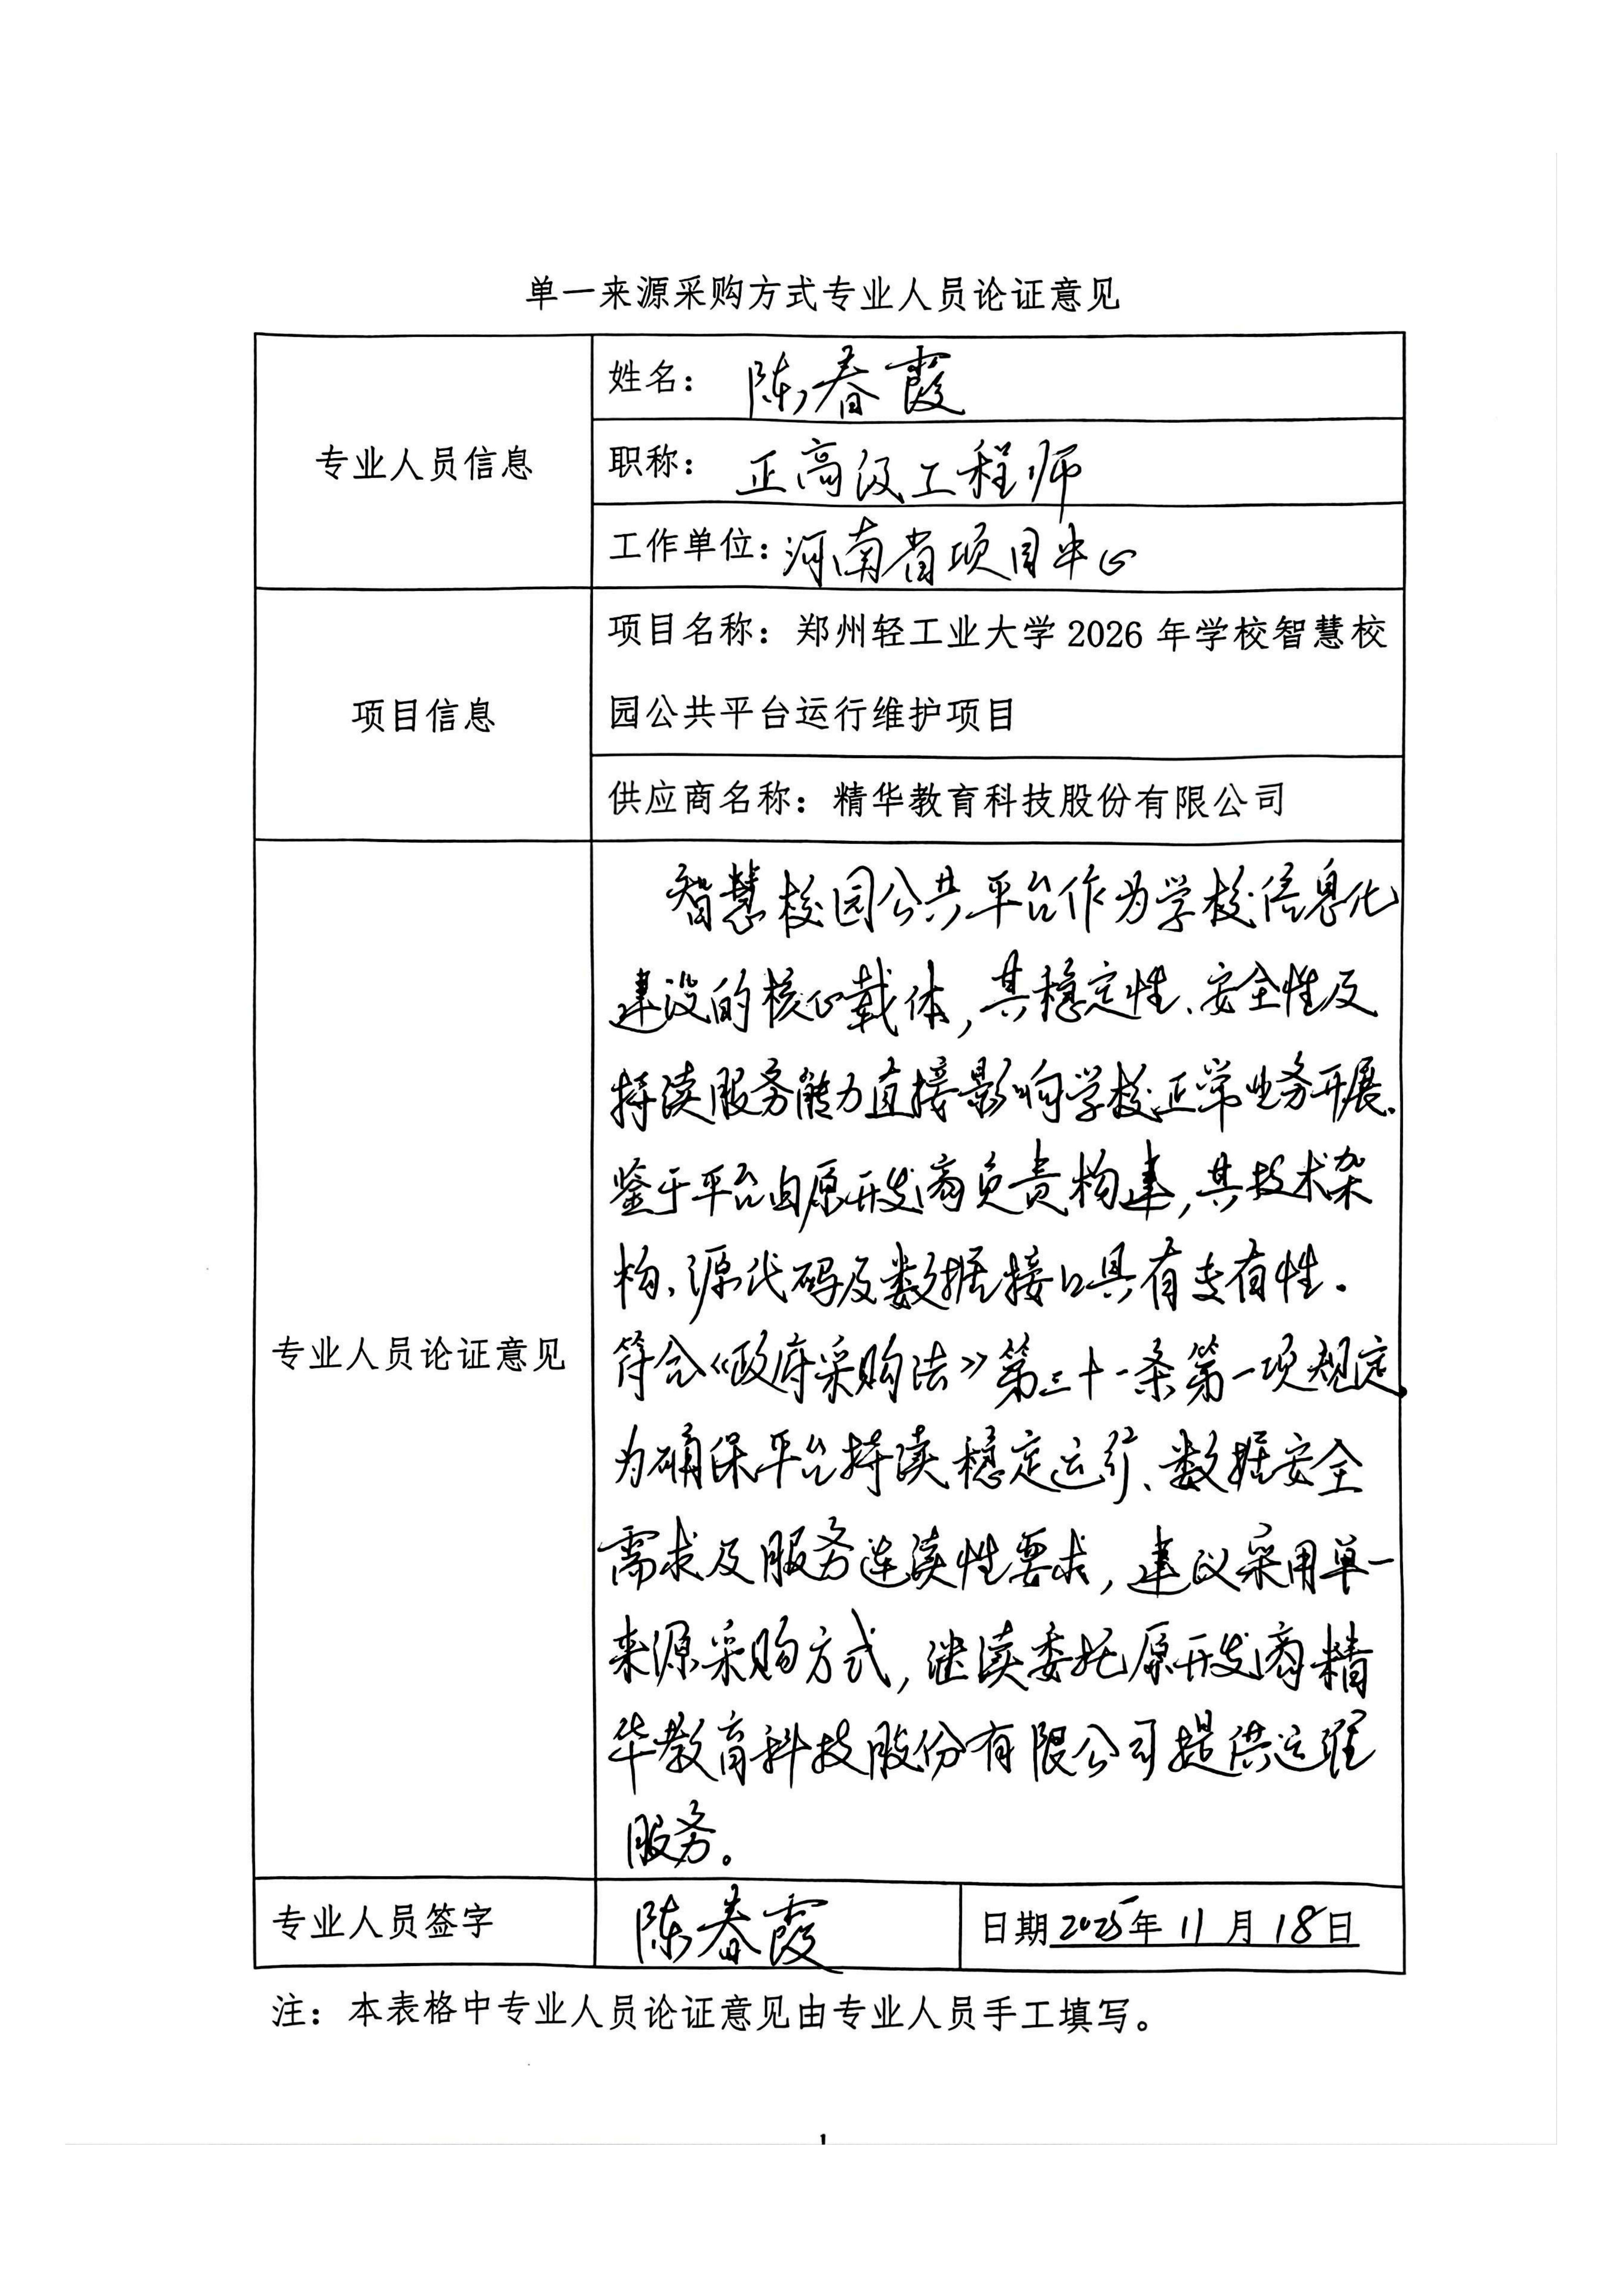 单一来源采购方式专业人员论证意见
专业人员信息
姓名：陈春霞
职称：正高级工程师
工作单位：河南省项目中心
项目信息
项目名称：郑州轻工业大学2026年学校智慧校
园公共平台运行维护项目
供应商名称：精华教育科技股份有限公司
专业人员论证意见
智慧校园公共平台作为学校信息化
建设的核心载体，其稳定性、安全性及
持续服务能力直接影响学校正常业务开展.
鉴于平台由原开发商负责构建，其技术架
构、源代码及数据接口具有专有性.
符合《政府采购法》第三十一条第一项规定.
为确保平台持续稳定运行、数据安全
需求及服务连续性要求，建议采用单一
来源采购方式，继续委托原开发商精
华教育科技股份有限公司提供运维
服务。
专业人员签字
陈春霞
日期2025年11月18日
注：本表格中专业人员论证意见由专业人员手工填写。
1